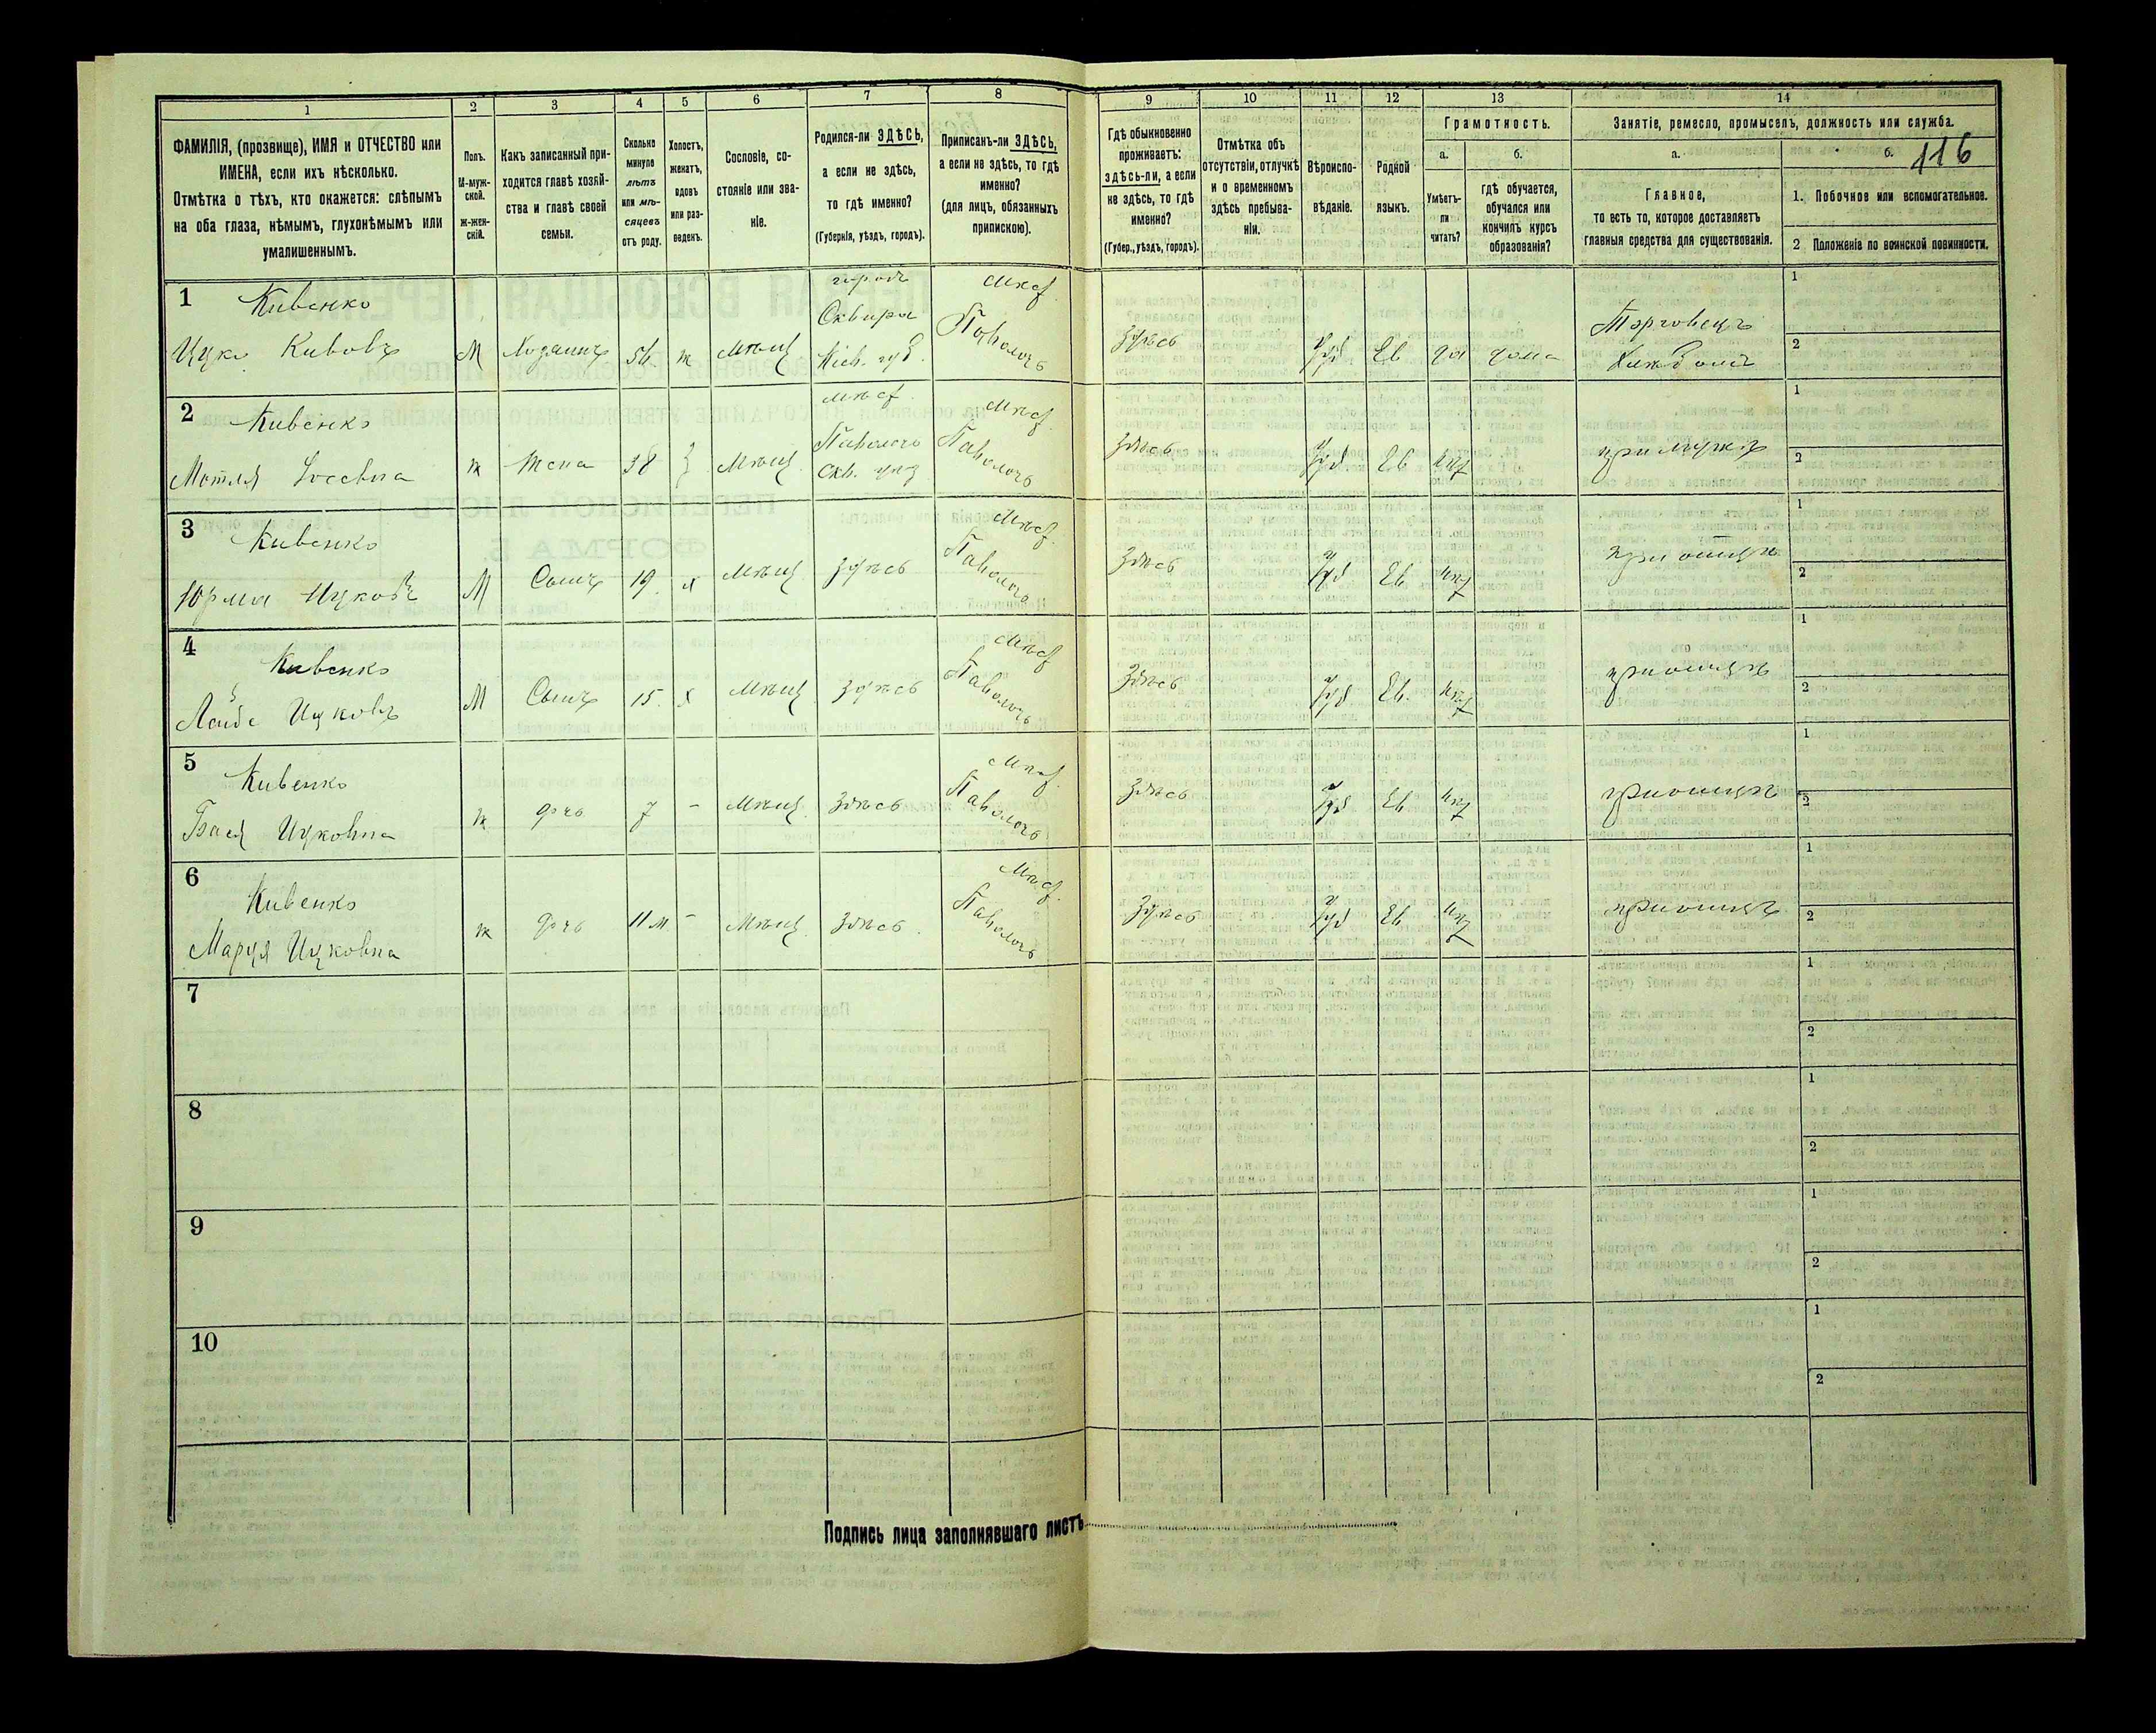 1
2
3
4
5
6
7
8
ФАМИЛІЯ, (прозвище), ИМЯ и ОТЧЕСТВО или
ИМЕНА, если ихъ нѣсколько.
Отмѣтка о тѣхъ, кто окажется: слѣпымъ
на оба глаза, нѣмымъ, глухонѣмымъ или
умалишеннымъ.
Полъ.
М-муж-
ской.
ж-жен-
скій.
Какъ записанный при-
ходится главѣ хозяй-
ства и главѣ своей
семьи.
Сколько
минуло
лѣтъ
или мѣ-
сяцевъ
отъ роду.
Холостъ,
женатъ,
вдовъ
или раз-
веденъ.
Сословіе, со-
стояніе или зва-
ніе.
Родился-ли ЗДѢСЬ,
а если не здѣсь,
то гдѣ именно?
(Губернія, уѣздъ, городъ).
Приписанъ-ли ЗДѢСЬ,
а если не здѣсь, то гдѣ
именно?
(для лицъ, обязанныхъ
припискою).
9
10
11
12
13
14
Гдѣ обыкновенно
проживаетъ:
здѣсь-ли, а если
не здѣсь, то гдѣ
именно?
(Губер., уѣздъ, городъ).
Отмѣтка объ
отсутствіи, отлучкѣ
и о временномъ
здѣсь пребыва-
ніи.
Вѣроиспо-
вѣданіе.
Родной
языкъ.
Грамотность.
а.
Умѣетъ-
ли
читать?
б.
гдѣ обучается,
обучался или
кончилъ курсъ
образованія?
Занятіе, ремесло, промыселъ, должность или служба.
а.
Главное,
то есть то, которое доставляетъ
главныя средства для существованія.
б.
116
1. Побочное или вспомогательное.
2 Положеніе по воинской повинности.
1
Кивенко
Ицко Кивовъ
М
Хозяинъ
54
ж
Мѣщ
городъ
Сквира
Кіев. губ.
Мѣст.
Паволочь
здѣсь
Іуд
Ев
да
дома
Торговецъ
Хлѣбомъ
1
2
2
Кивенко
Мотля Іосевна
ж
Жена
38
З
Мѣщ
мѣст
Паволочь
Скв. уѣз
Мѣст.
Паволочь
здѣсь
Іуд
Ев
нѣт
при мужѣ
1
2
3
Кивенко
Юрма Ицковъ
М
Сынъ
19
х
Мѣщ
здѣсь
Мѣст.
Паволочь
здѣсь
Іуд
Ев
нѣт
при отцѣ
1
2
4
Кивенко
Ицковъ
М
Сынъ
15
х
Мѣщ
здѣсь
Мѣст
Паволочь
здѣсь
Іуд
Ев.
нѣт
при отцѣ
1
2
5
Кивенко
Бася Ицковна
ж
дочь
7
-
Мѣщ
здѣсь
Мѣст.
Паволочь
здѣсь
Іуд
Ев
нѣт
при отцѣ
1
2
6
Кивенко
Маруя Ицковна
ж
дочь
11 м
-
Мѣщ
здѣсь
Мѣст.
Паволочь
здѣсь
Іуд
Ев
нѣт
при отцѣ
1
2
7
1
2
8
1
2
9
1
2
10
1
2
Подпись лица заполнявшаго листъ